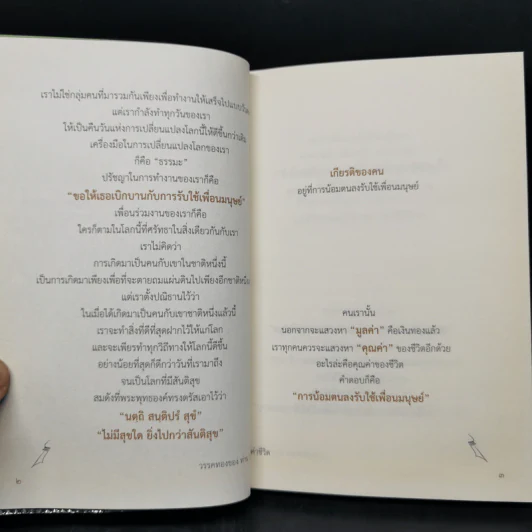 เราไม่ใช่กลุ่มคนที่มารวมกันเพียงเพื่อทำงานให้เสร็จไปแบบวัน
แต่เรากำลังทำทุกวันของเรา
ให้เป็นคืนวันแห่งการเปลี่ยนแปลงโลกนี้ให้ดีขึ้นกว่าเดิม
เครื่องมือในการเปลี่ยนแปลงโลกของเรา
ก็คือ “ธรรมะ”
ปรัชญาในการทำงานของเราก็คือ
“ขอให้เธอเบิกบานกับการรับใช้เพื่อนมนุษย์”
เพื่อนร่วมงานของเราก็คือ
ใครก็ตามในโลกนี้ที่ศรัทธาในสิ่งเดียวกันกับเรา
เราไม่คิดว่า
การเกิดมาเป็นคนกับเขาในชาติหนึ่งนี้
เป็นการเกิดมาเพียงเพื่อที่จะตายถมแผ่นดินไปเพียงอีกชาติหนึ่ง
แต่เราตั้งปณิธานไว้ว่า
ในเมื่อได้เกิดมาเป็นคนกับเขาชาติหนึ่งแล้วนี้
เราจะทำสิ่งที่ดีที่สุดฝากไว้ให้แก่โลก
และจะเพียรทำทุกวิถีทางให้โลกนี้ดีขึ้น
อย่างน้อยที่สุดก็ดีกว่าวันที่เรามาถึง
จนเป็นโลกที่มีสันติสุข
สมดังที่พระพุทธองค์ทรงตรัสเอาไว้ว่า
“นตฺถิ สนฺติปรํ สุขํ”
“ไม่มีสุขใด ยิ่งไปกว่าสันติสุข”
วรรคทองของ
๒
เกียรติของคน
อยู่ที่การน้อมตนลงรับใช้เพื่อนมนุษย์
คนเรานั้น
นอกจากจะแสวงหา “มูลค่า” คือเงินทองแล้ว
เราทุกคนควรจะแสวงหา “คุณค่า” ของชีวิตอีกด้วย
อะไรล่ะคือคุณค่าของชีวิต
คำตอบก็คือ
“การน้อมตนลงรับใช้เพื่อนมนุษย์”
ค่าชีวิต
๓